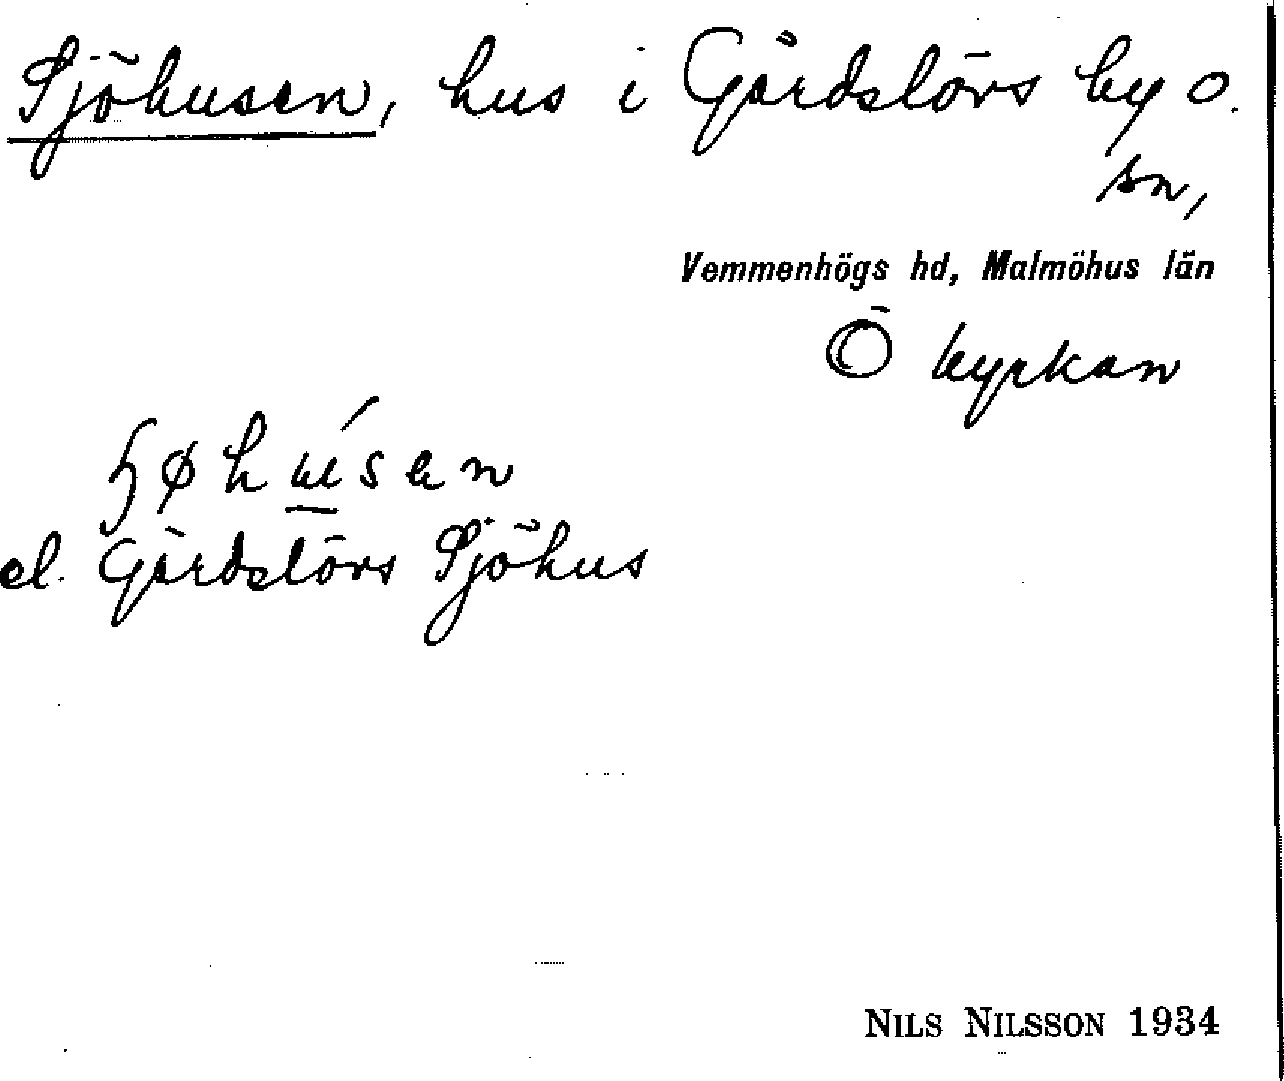 Sjöhusen, hus i Gårdslövs by o.
sn,
Vemmenhögs hd, Malmöhus län
Ö kyrkan
el. Gårdslövs Sjöhus
NILS NILSSON 1934